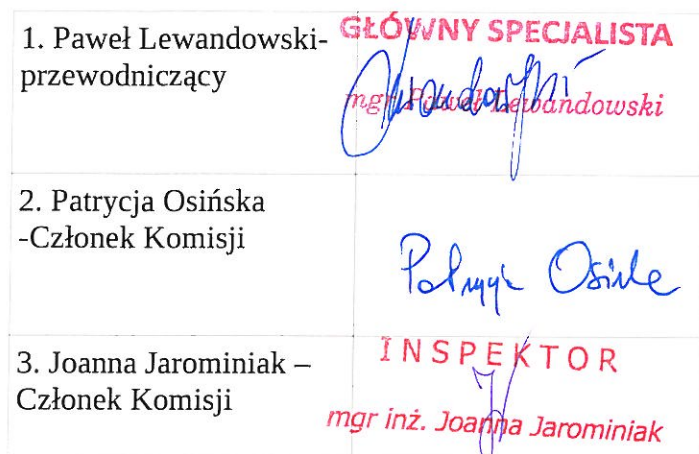 1. Paweł Lewandowski-
przewodniczący
GŁÓWNY SPECJALISTA
mgr Paweł Lewandowski
2. Patrycja Osińska
-Członek Komisji
Patrycja Osińska
3. Joanna Jarominiak –
Członek Komisji
INSPEKTOR
mgr inż. Joanna Jarominiak